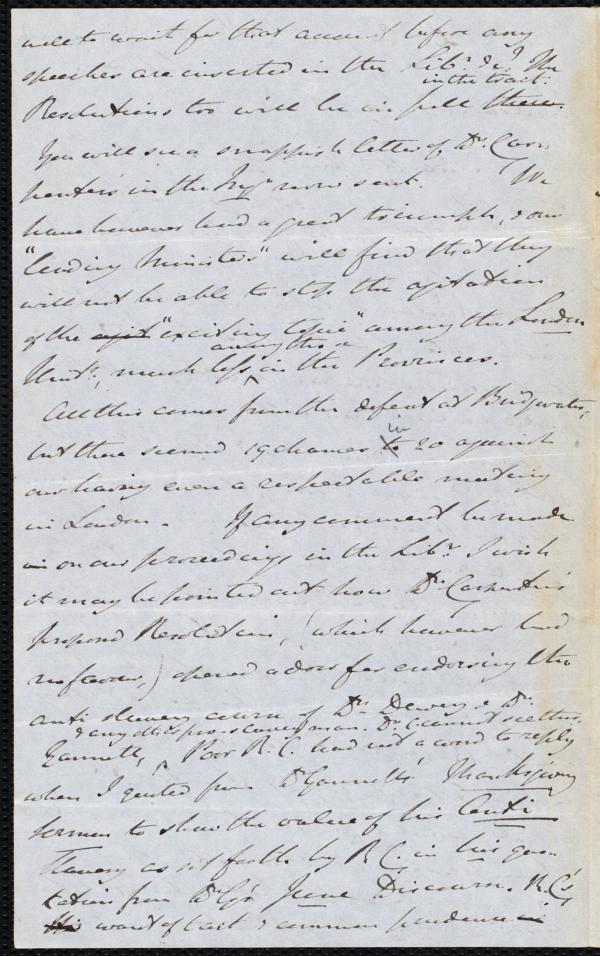 well to wait for that account before any
speeches are inserted in the Libr. &c? The
in the tract.
Resolutions too will be in full there.
You will see a snappish letter of Dr. Car-
penter's in the Inqr. now sent. We
have however had a great triumph, & our
"leading Ministers" will find that they
will not be able to stop the agitation
of the agit "exciting topic" among the London
among those
Unitns, much less in the Provinces.
All this comes from the defeat at Bridgwater,
in
but there seemed 19 chances to 20 against
our having even a respectable meeting
in London. If any comment be made
in on our proceedings in the Libr. I wish
it may be pointed out how Dr. Carpenter's
proposed Resolutions, (which however had
no favour,) opened a door for endorsing the
anti slavery course of Drs. Dewey & Dr.
& any other pro-slavery man. Dr. C. cannot see this.
Gannett, Poor R. C. had not a word to reply
when I quoted from Dr Gannett's Thanksgiving
Sermon to show the value of his Anti
Slavery as set forth by R C. in his quo-
tation from Dr G's June Discourse. R. C's
His want of tact & common prudence in